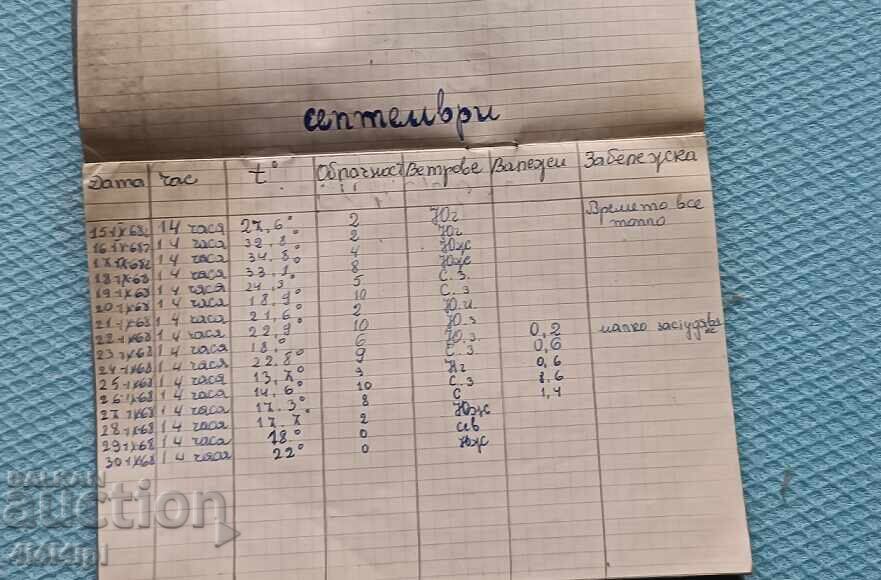 септември
Дата час t° Облачност Ветрове Валежи Забележка
15-IX-68 14 часа 27,6° 2 Юг Времето все
16-IX-68 14 часа 32,8° 2 Юг топло
17-IX-68 14 часа 34,8° 4 Юж
18-IX-68 14 часа 33,1° 8 Юж
19-IX-68 14 часа 24,3° 5 С.З.
20-IX-68 14 часа 18,9° 10 С.З
21-IX-68 14 часа 21,6° 2 Ю.И.
22-IX-68 14 часа 22,9° 10 Ю.З 0,2 малко
23-IX-68 14 часа 18,° 6 Ю.З. 0,6
24-IX-68 14 часа 22,8° 9 С.З 0,6
25-IX-68 14 часа 13,7° 9 Юг 1,6
26-IX-68 14 часа 14,6° 10 С.З 1,4
27-IX-68 14 часа 17.3° 8 С
28-IX-68 14 часа 17.7 2 Юж
29-IX-68 14 часа 18° 0 ив
30-IX-68 14 часа 22° 0 юж
BALKAN
auction